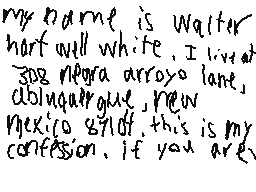 my name is walter
hartwell white. I live at
308 negra arroyo lane,
abluquerque, new
mexico 87104. this is my
confession. if you are,